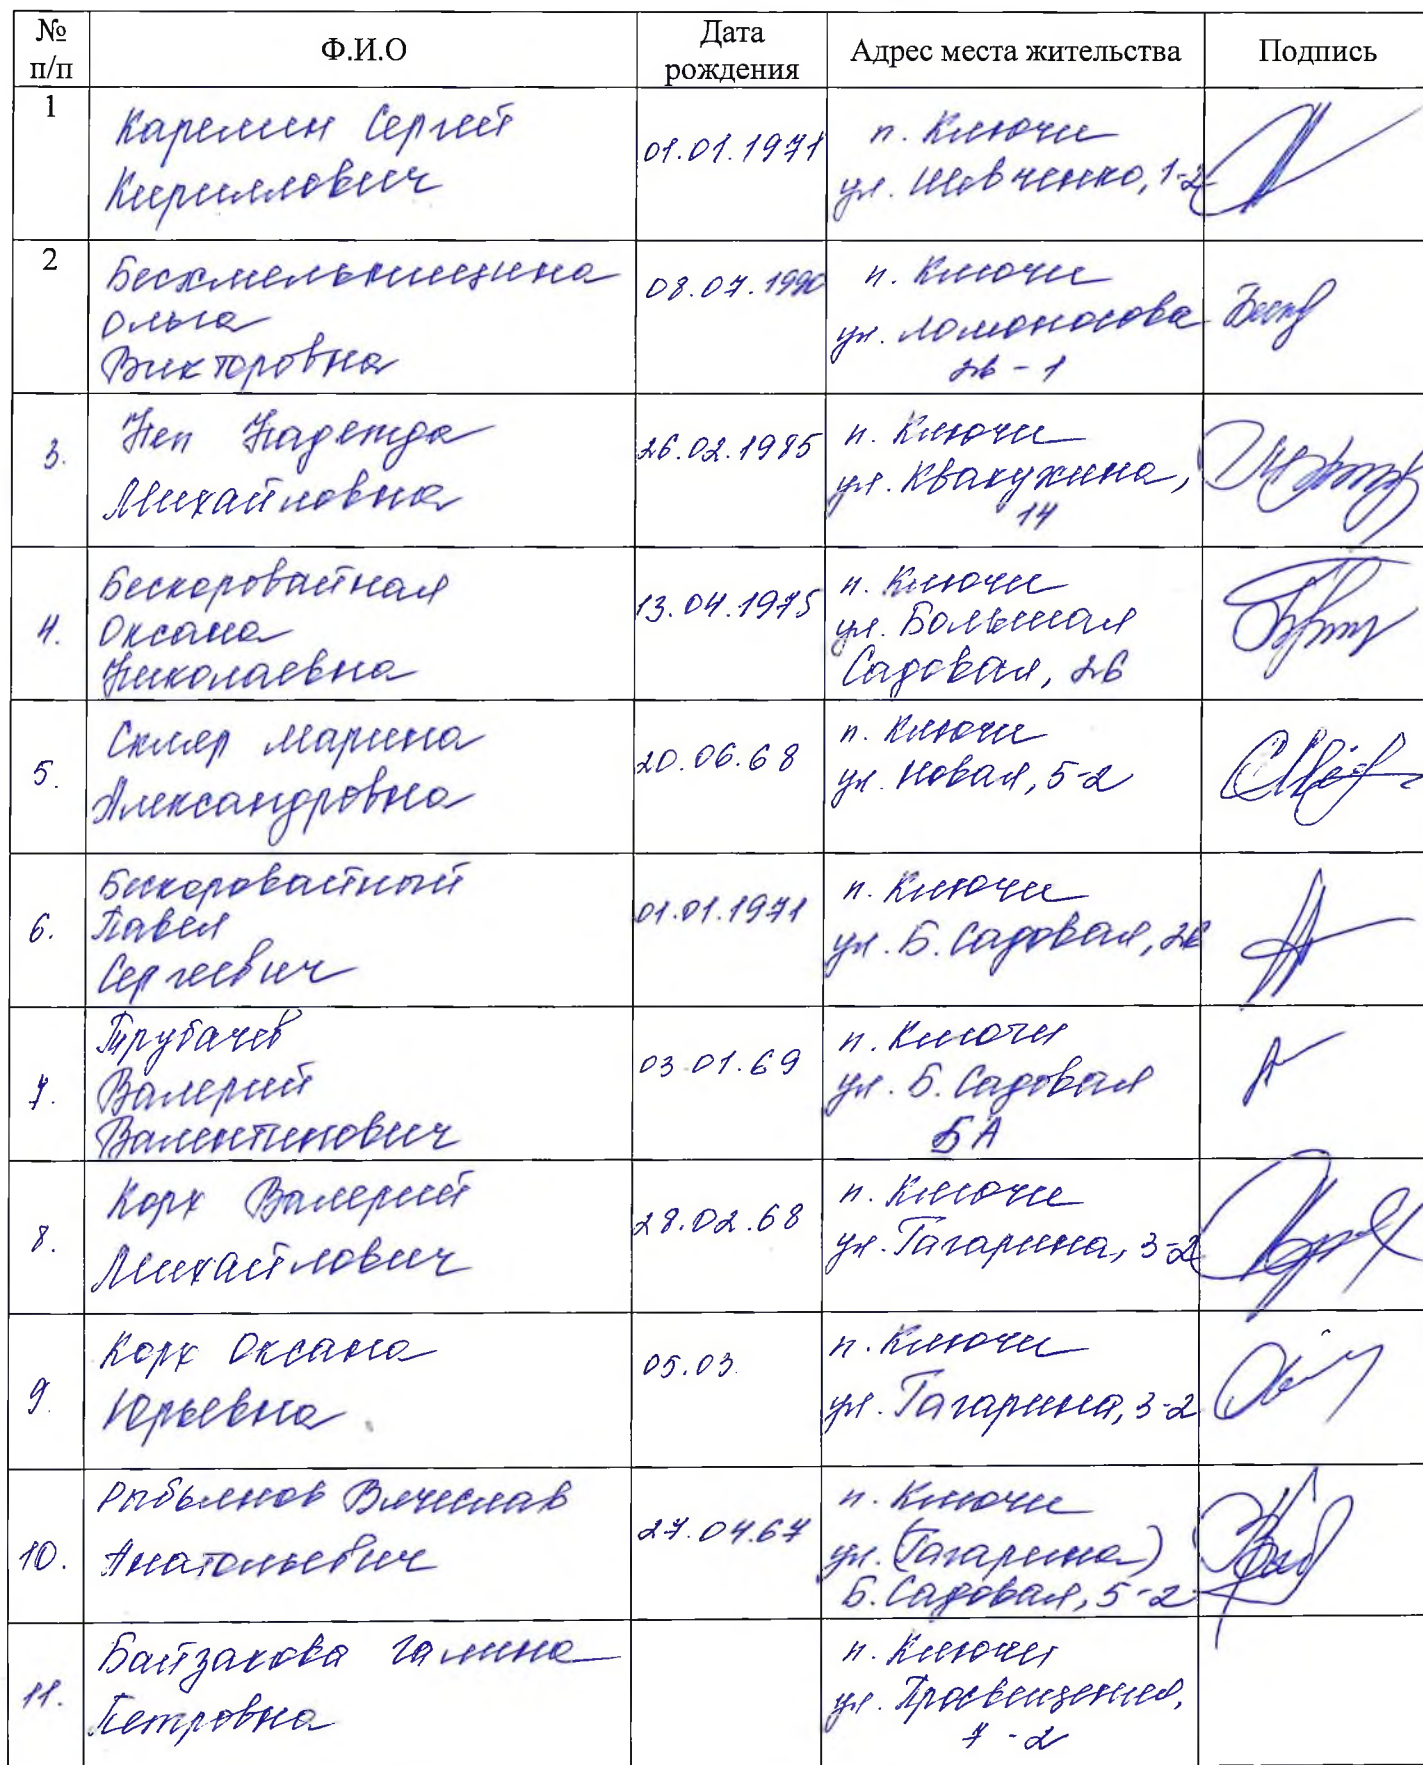 № п/п Ф.И.О Дата рождения Адрес места жительства Подпись
1 Карелин Сергей Кириллович 01.01.1971 п. Ключи ул. Шевченко, 1-2
2 Бесхмельницина Ольга Викторовна 08.07.1990 п. Ключи ул. Ломоносова 2в - 1
3. Неп Надежда Михайловна 26.02.1985 п. Ключи ул. Квакухина, 14
4. Бескоровайная Оксана Николаевна 13.04.1975 п. Ключи ул. Большая Садовая, 2б
5. Скляр Марина Александровна 20.06.68 п. Ключи ул. Новая, 5-2
6. Бескоровайный Павел Сергеевич 01.01.1971 п. Ключи ул. Б. Садовая, 2б
7. Трубачев Валерий Валентинович 03.01.69 п. Ключи ул. Б. Садовая 5А
8. Корх Валерий Михайлович 28.02.68 п. Ключи ул. Гагарина, 3-2
9. Корх Оксана Юрьевна 05.03. п. Ключи ул. Гагарина, 3-2
10. Вячеслав Анатольевич 27.04.67 п. Ключи ул. (Гагарина) Б. Садовая, 5-2
11. Байзакова Галина Петровна п. Ключи ул. Просвещения, 7-2